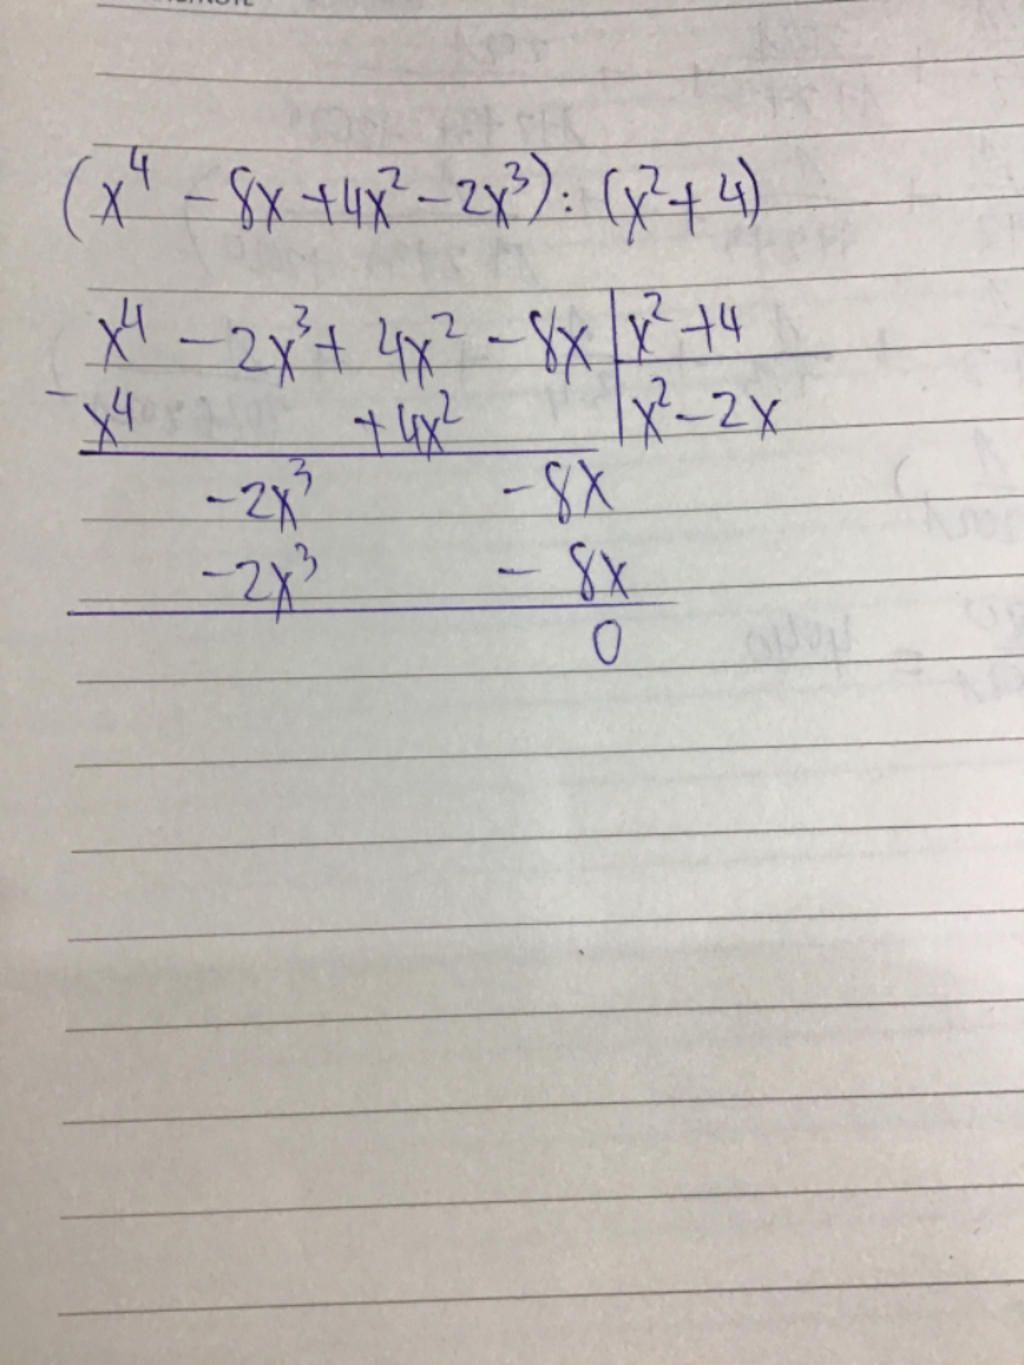 (x⁴ - 8x + 4x² - 2x³) : (x² + 4)
x⁴ - 2x³ + 4x² - 8x | x² + 4
- x⁴ + 4x² | x² - 2x
- 2x³ - 8x
- 2x³ - 8x
0